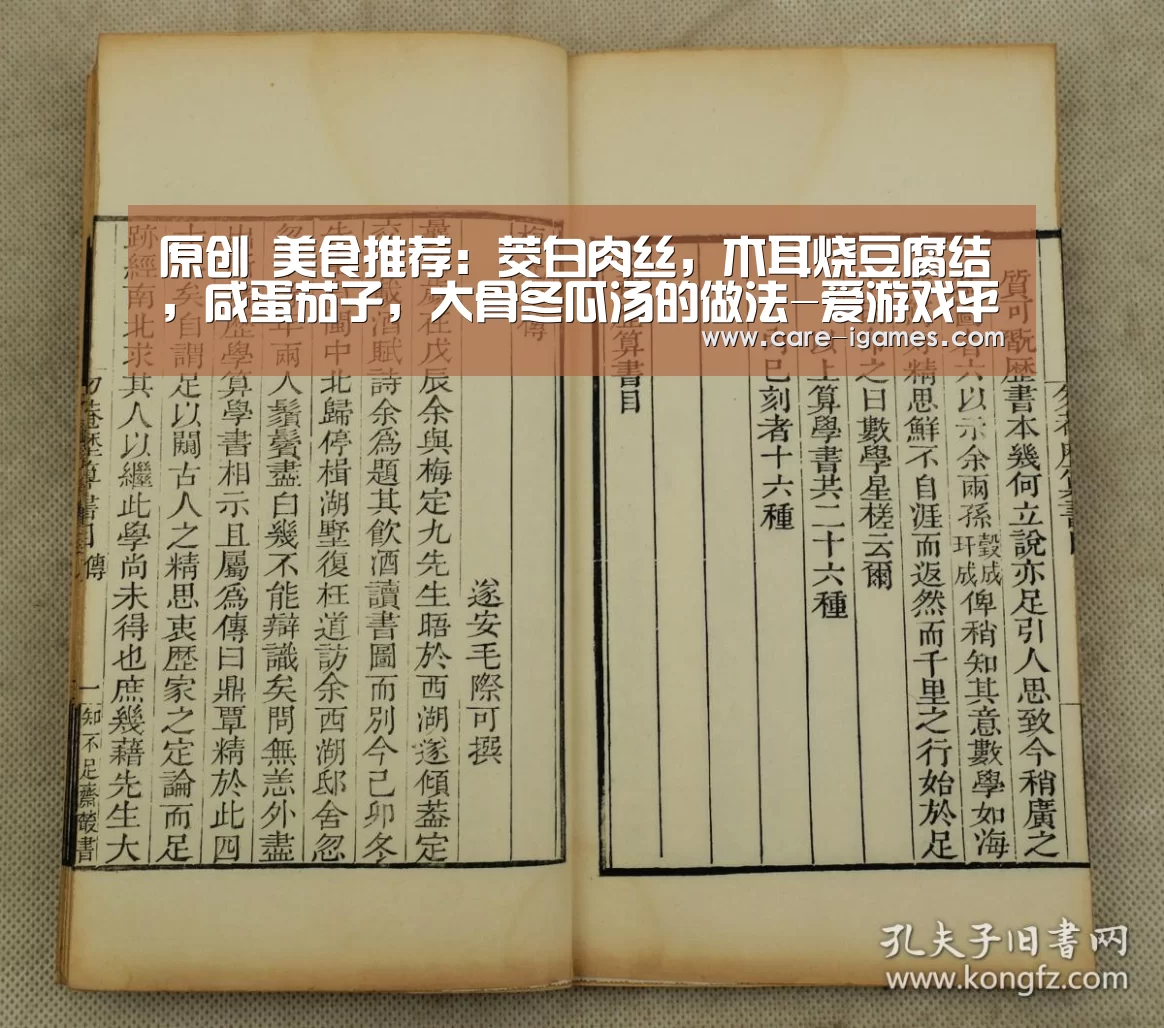 原创 美食推荐：茭白肉丝，木耳烧豆腐结
，咸蛋茄子，大骨冬瓜汤的做法-爱游戏平
www.care-igames.com
質可翫歴書本幾何立說亦足引人思致今稍廣之
者六以示余兩孫瑴成玕成俾稍知其意數學如海
精思鮮不自涯而返然而千里之行始於足
之曰數學星槎云爾
以上算學書共二十六種
已刻者十六種
算書目
傳
遂安毛際可撰
在戊辰余與梅定九先生晤於西湖遂傾葢定
賦詩余為題其飲酒讀書圖而別今己卯冬
閩中北歸停楫湖墅復枉道訪余西湖邸舍忽
年兩人鬚鬢盡白幾不能辯識矣問無恙外盡
歷學算學書相示且屬為傳曰鼎覃精於此四
自謂足以闚古人之精思衷歴家之定論而足
跡經南北求其人以繼此學尚未得也庶幾藉先生大
勿菴歴算書目 傳 一 知不足齋叢書
孔夫子旧书网
www.kongfz.com